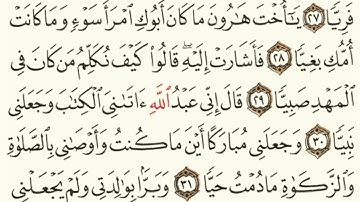 فَرِيًّا ٢٧ يَٰٓأُخْتَ هَٰرُونَ مَا كَانَ أَبُوكِ ٱمْرَأَ سَوْءٍ وَمَا كَانَتْ
أُمُّكِ بَغِيًّا ٢٨ فَأَشَارَتْ إِلَيْهِ ۖ قَالُوا۟ كَيْفَ نُكَلِّمُ مَن كَانَ فِى
ٱلْمَهْدِ صَبِيًّا ٢٩ قَالَ إِنِّى عَبْدُ ٱللَّهِ ءَاتَىٰنِىَ ٱلْكِتَٰبَ وَجَعَلَنِى
نَبِيًّا ٣٠ وَجَعَلَنِى مُبَارَكًا أَيْنَ مَا كُنتُ وَأَوْصَٰنِى بِٱلصَّلَوٰةِ
وَٱلزَّكَوٰةِ مَا دُمْتُ حَيًّا ٣١ وَبَرًّۢا بِوَٰلِدَتِى وَلَمْ يَجْعَلْنِى